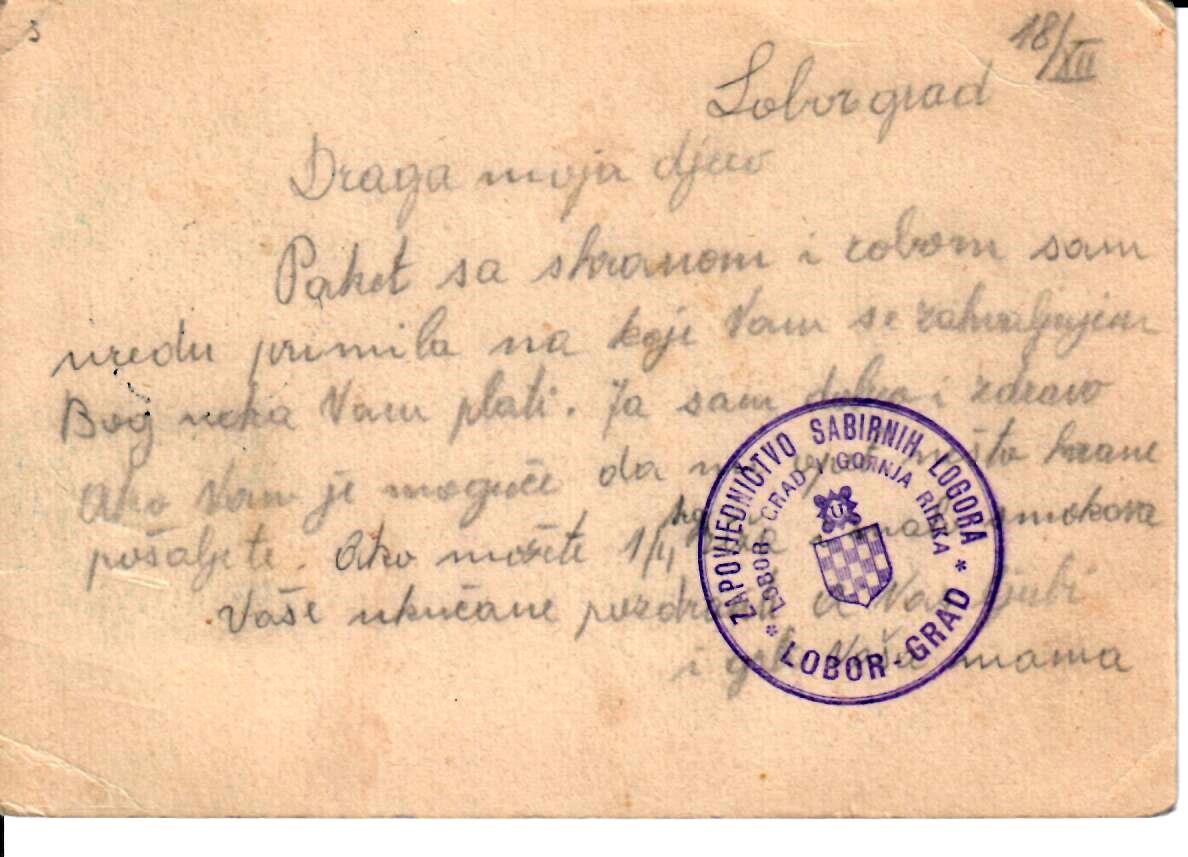 18/XII
Loborgrad
Draga moja djeco
Paket sa shranom i robom sam
uredu primila na koje Vam se zahvaljujem
Bog neka Vam plati. Ja sam dobro i zdravo
Ako Vam je moguće da mi opet nešto hrane
pošaljete. Ako možete 1/4 kg i malo smokava
Vaše ukućane pozdravlja a Vas ljubi
i grli Vaša mama
ZAPOVJEDNIČTVO SABIRNIH LOGORA
LOBOR-GRAD I GORNJA RIEKA
U
* LOBOR-GRAD *